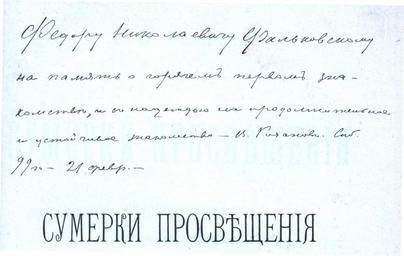 Ѳедору Николаевичу Фальковскому
на память о горячемъ первомъ зна-
комствѣ, и съ надеждою на продолжительное
и устойчивое знакомство — В. Розановъ. Спб.
99 г. — 21 февр. —
СУМЕРКИ ПРОСВѢЩЕНІЯ